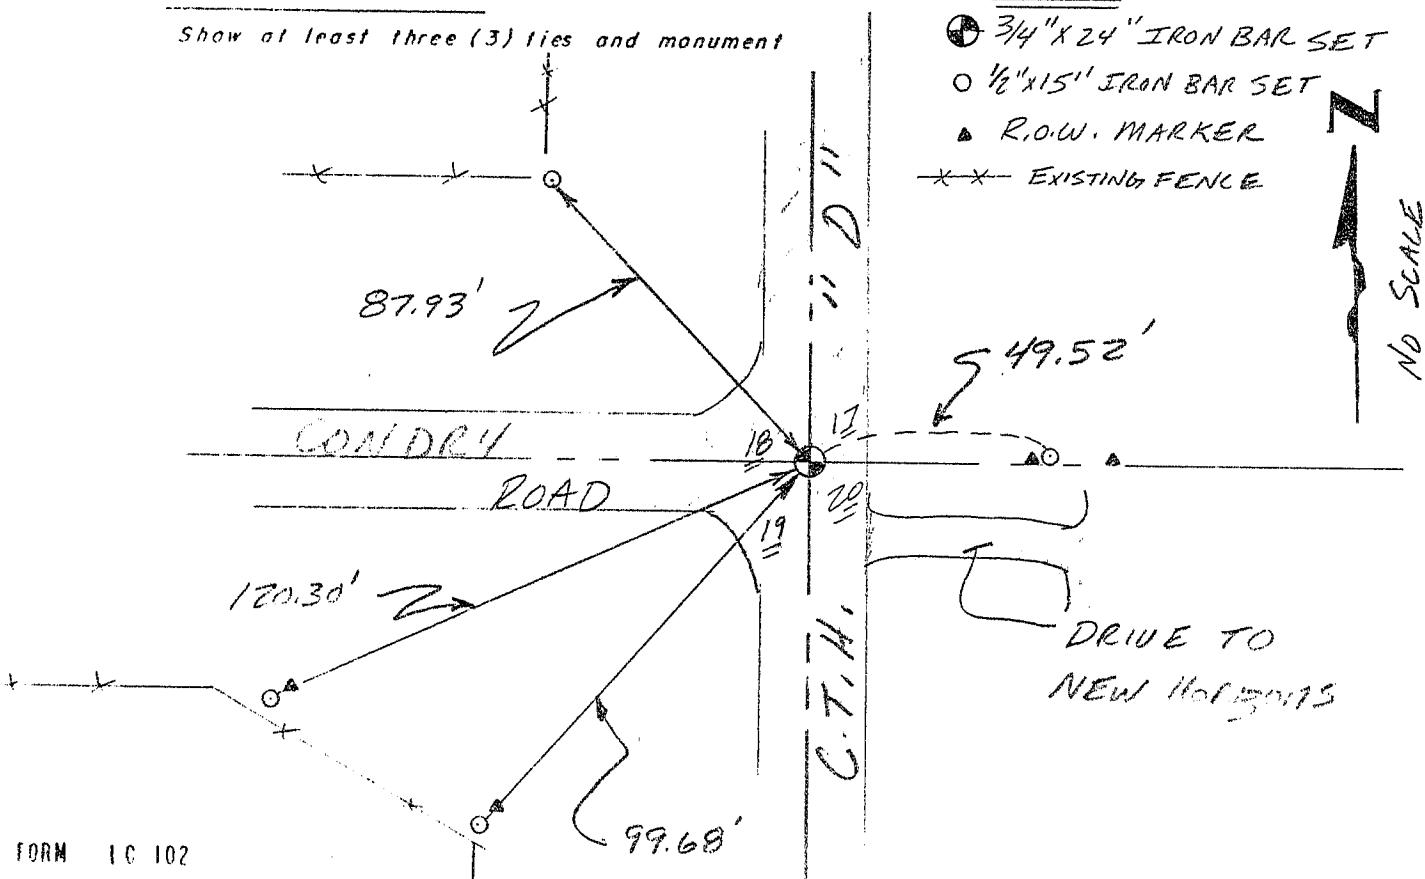 Show at least three (3) ties and monument
3/4" X 24" IRON BAR SET
1/2" x 15" IRON BAR SET
R.O.W. MARKER
EXISTING FENCE
N
NO SCALE
"D"
87.93'
49.52'
CONDRY
ROAD
18
17
19
20
120.30'
C.T.H.
DRIVE TO
NEW HORIZONS
99.68'
FORM IC 102